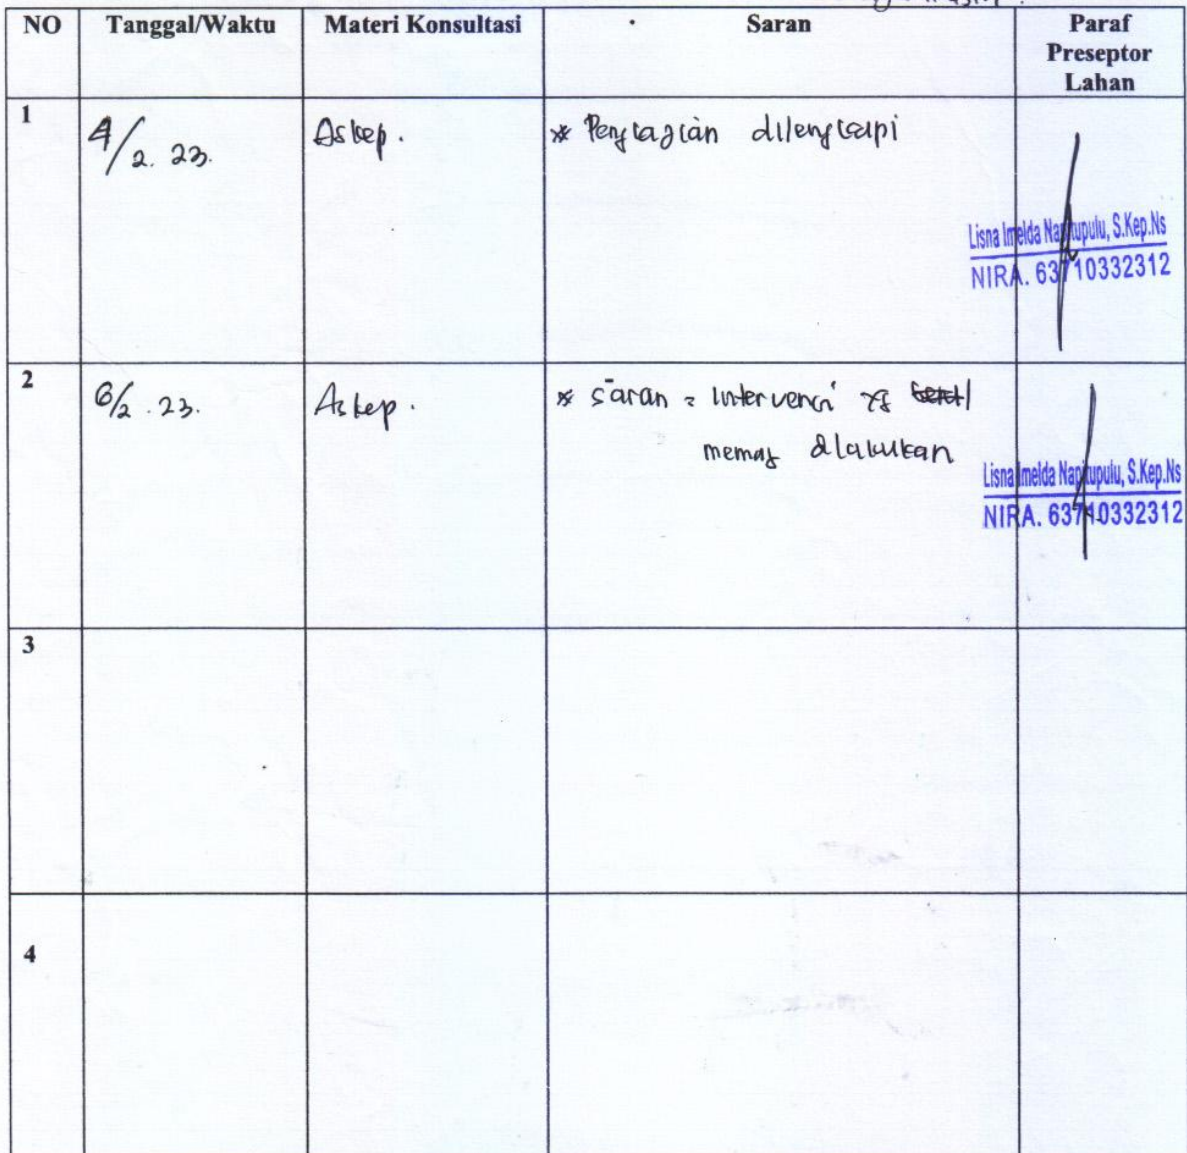 NO Tanggal/Waktu Materi Konsultasi Saran Paraf
Preseptor
Lahan
1 4/2. 23. Askep. * Pengkajian dilengkapi
Lisna Imelda Napitupulu, S.Kep.Ns
NIRA. 63710332312
2 6/2. 23. Askep. * saran = Intervensi yg
memang dilakukan
Lisna Imelda Napitupulu, S.Kep.Ns
NIRA. 63710332312
3
4